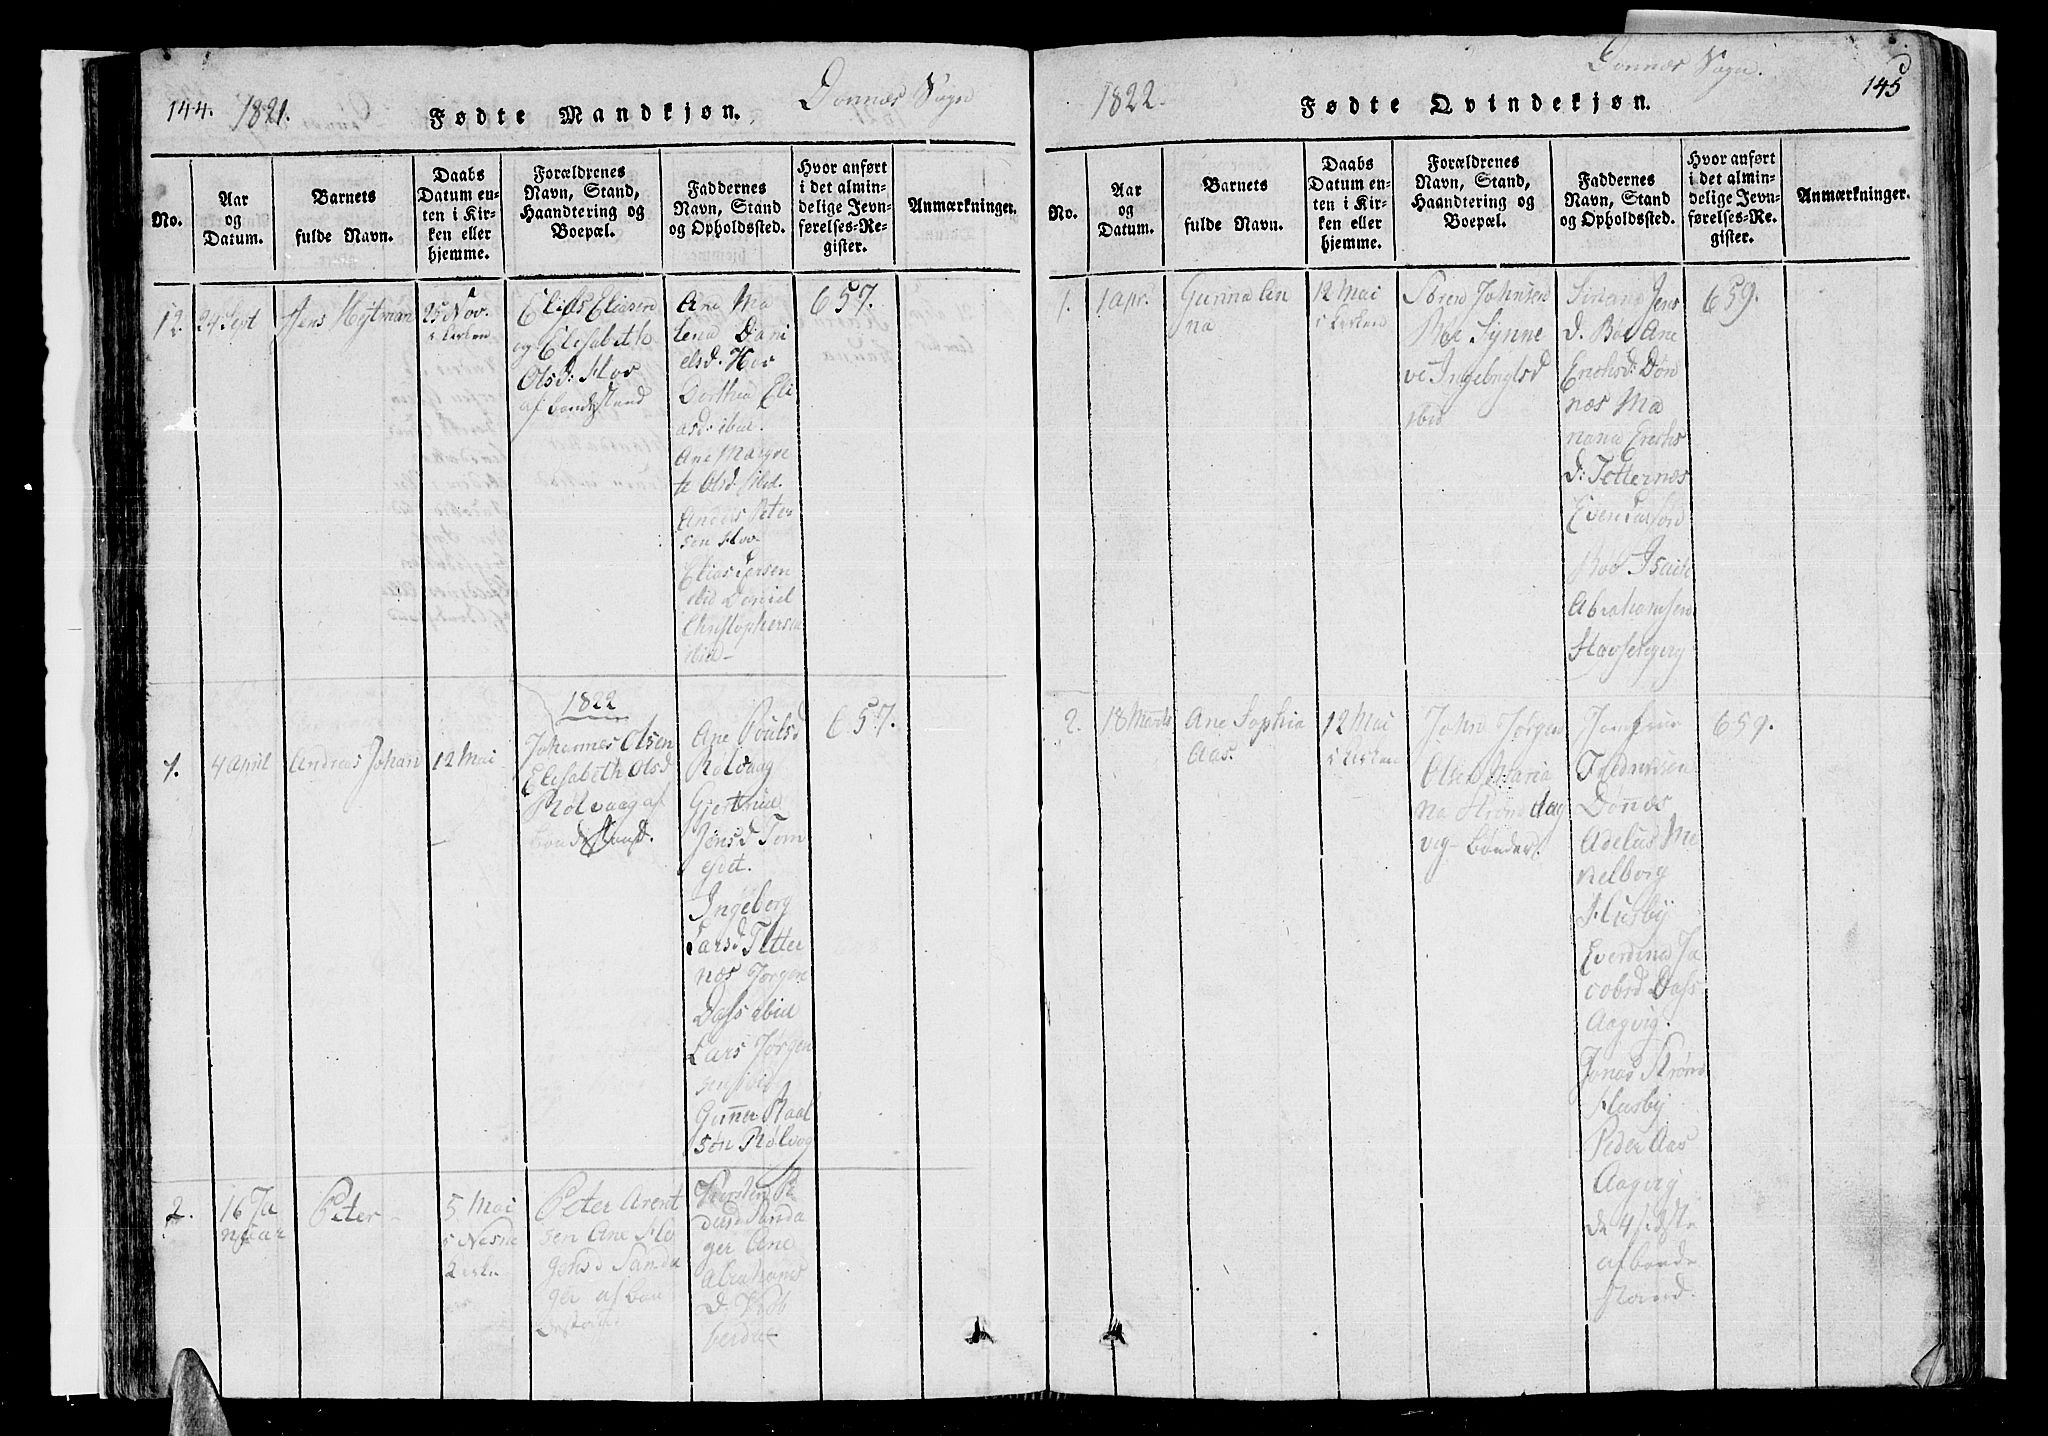 144. 1821. Fødte Mandkjøn. Donnæs Sogn
No.
Aar
og
Datum.
Barnets
fulde Navn.
Daabs
Datum en-
ten i Kir-
ken eller
hjemme.
Forældrenes
Navn, Stand,
Haandtering og
Boepæl.
Faddernes
Navn, Stand
og Opholdssted.
Hvor anført
i det almin-
delige Jevn-
førelses-Re-
gister.
Anmærkninger.
12.
24 Sept
Jens Hejtman
25 Nov.
i kirken
Elias Eliasen
og Elisabeth
Olsd: Hov
af bondestand
Ane Ma
lena Dani
elsd. Hov
Dorthea Eli
asd: ibid.
Ane Margre
te Olsd
Anders Peter
sen Hov
Elias
ibid Daniel
Christophersen
ibid
657.
1822
1.
4 April
Andreas Johan
12 Mai
Johannes Olsen
Elisabeth Olsd
Rølvaag af
bondestand.
Ane Poulsd
Rølvaag
Gjertrud
Jensd Tom
ejdet.
Ingeberg
Larsd Tetter
næs Jørgen
Dass ibid
Lars Jørgen
sen ibid
Gunner
søn Rølvog
657.
2.
16 Ja
nuar
Peter
5 Mai
i Nesne
Kirke
Peter Arent
sen Ane
Sanda
ger af bon
destand
Sanda
ger Ane
Abrahams
D.
1822. Fødte Qvindekjøn. Donnæs Sogn. 145
No.
Aar
og
Datum.
Barnets
fulde Navn.
Daabs
Datum en-
ten i Kir-
ken eller
hjemme.
Forældrenes
Navn, Stand,
Haandtering og
Boepæl.
Faddernes
Navn, Stand
og Opholdssted.
Hvor anført
i det almin-
delige Jevn-
førelses-Re-
gister.
Anmærkninger.
1.
1 Apr.
Gunna An
na
12 Mai
i kirken
Søren Johnsen
Synne
ve Ingebrigtsd
ibid
Jens
d. Bøe Ane
Erichsd: Døn
næs Ma
riana Erichs
D: Tetternæs
Even
Bøe Isach
Abrahamsen
659.
2.
18 Marts
Ane Sophia
Aas.
12 Mai
i kirken
John Jørgen
Olsen Maria
na Strøm Aag
vig - bønder.
Jomfrue
Fredriksen
Dønnes
Adelus Me
Husby
Everdina Ja
cobsd Dass
Aagvig.
Jonas Strøm
Husby
Peder Aas
Aagvig
de 4 sidste
af bonde
stand.
659.